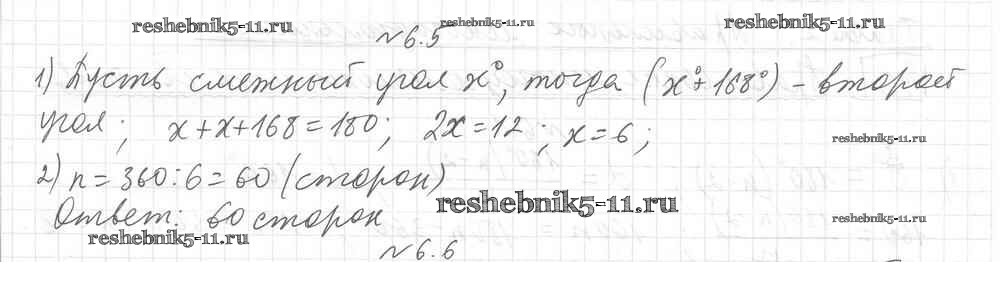 reshebnik5-11.ru reshebnik5-11.ru reshebnik5-11.ru
№6.5
1) Пусть смежный угол x°, тогда (x°+168°) - второй
угол; x+x+168=180; 2x=12; x=6;
reshebnik5-11.ru
2) n=360:6=60 (сторон)
reshebnik5-11.ru
Ответ: 60 сторон
reshebnik5-11.ru
reshebnik5-11.ru
№6.6